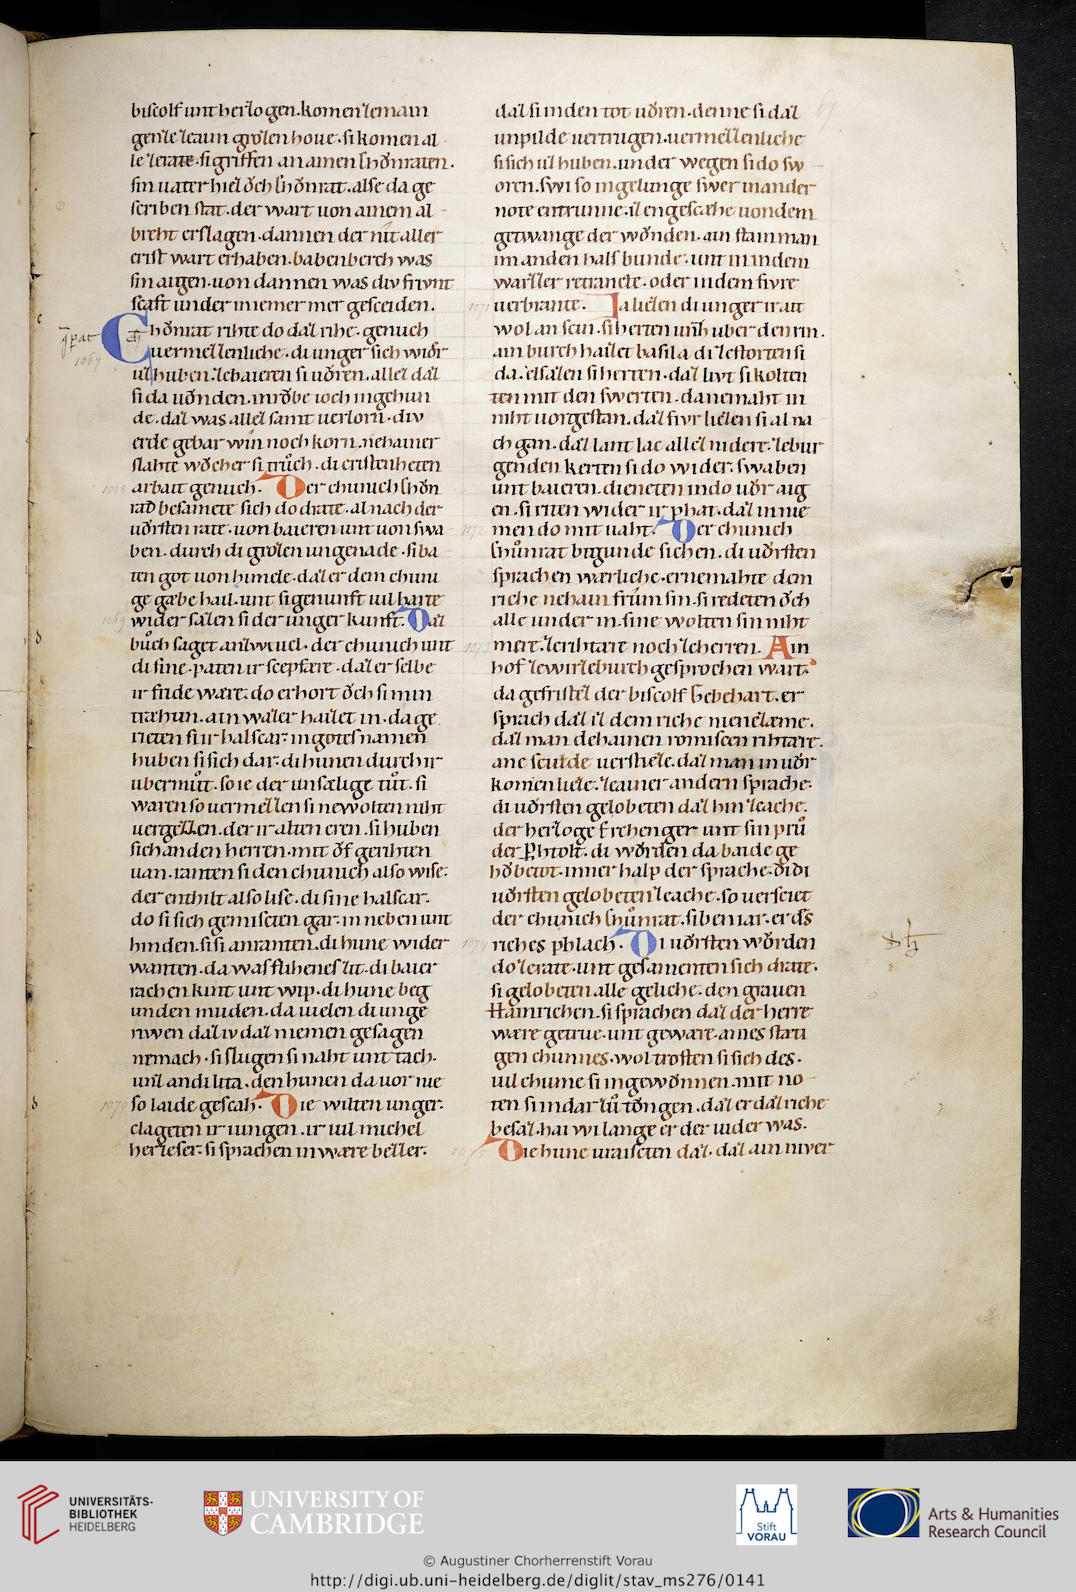 biscolf unt herzogen. komen zemain
genze zeaun grozen houe. si komen al
le zerate. si griffen an ainen Chůnraten.
sin uater hiez ǒch Chůnrat. alse da ge
scriben stat. der wart uon ainem al
breht erslagen. dannen der nit aller
erist wart erhaben. babenberch was
sin aigen. uon dannen was div frivnt
scaft under in iemer mer gesceiden.
Chůnrat rihte do daz rihe. genuch
uermezzenliche. di unger sich widir
uz huben. zebaieren si uůren. allez daz
si da uůnden. in růbe ioch in gehun
de. daz was allez samt uerlorn. div
erde gebar win noch korn. nehainer
slahte wůcher si trůch. di cristenheten
arbait genuch. Der chunich Chůn
rad besamete sich do drate. al nach der
uůrsten rate. uon baieren unt uon swa
ben. durch di grozen ungenade. si ba
ten got uon himele. daz er dem chuni
ge gæbe hail. unt sigenunft uil harte
wider sazen si der unger kunft. Daz
bůch saget anlwiuel. der chunich unt
di sine. paten ir scepfære. daz er selbe
ir fride wære. do erhort ǒch si min
træhtin. ain wazer haizet in. da ge
rieten si ir halscar. in gotes namen
huben si sich dar. di hunen durch ir
ubermůt. so ie der unsælige tůt. si
waren so uermezzen si newolten niht
uergezzen. der ir alten eren. si huben
sich an den herren. mit ǒf gerihten
uan. ranten si den chunich also wise.
der enthilt also lise. di sine halscar.
do si sich gemisceten gar. in neben unt
hinden. si si anranten. di hune wider
wanten. da was flihenes zit. di baier
rachen kint unt wip. di hune beg
unden muden. da uielen di unge
riwen daz iv daz niemen gesagen
nemach. si slugen si naht unt tach.
unz an di litta. den hunen da uor nie
so laide gescah. Die wilten unger.
clageten ir iungen. ir uil michel
her leser. si sprachen in wære bezzer.
daz si in den tot uůren. denne si daz
unpilde uertrugen. uermezzenliche
si sich uz huben. under wegen si do sw
oren. swi so in gelunge swer in ander
note entrunne. iz en gescæhe uon dem
getwange der wůnden. ain stain man
im an den hals bunde. unt in in dem
wazzer retrancte. oder in dem fivre
uerbrante. Ja liezen di unger ir ait
wol an scin. si herten unz uber den rin.
ain burch haizet basila di zestorten si
da. elsazen si herten. daz livt si kolten
ten mit den swerten. da nemaht in
niht uor gestan. daz fivr liezen si al na
ch gan. daz lant lac allez nidere. zebur
genden kerten si do widere. swaben
unt baieren. di eneten in do uůr aig
en. si riten wider ir phat. daz in nie
men do mit uaht. Der chunich
Chůnrat bigunde siechen. di uůrsten
sprachen wærliche. er nemahte dem
riche nehain frům sin. si redeten ǒch
alle under in. sine wolten sin niht
mere. ze rihtare noch ze herren. Ain
hof ze wirzeburch gesprochen wart.
da gefristez der biscolf Gebehart. er
sprach daz iz dem riche niene zæme.
daz man dehainen romiscen rihtare.
ane sculde uerstieze. daz man in uůr
komen lieze. ze ainer andern sprache.
di uůrsten gelobeten daz hin ze ache.
der herzoge Frehenger unt sin prů
der Phtolt. di wůrden da baide ge
hǒbetot. inner halp der sprache. di di
uůrsten gelobeten ze ache. so uersciet
der chunich Chůnrat. siben iar. er des
riches phlach. Di uůrsten wůrden
do ze rate. unt gesamenten sich drate.
si gelobeten alle geliche. den grauen
Hainrichen. si sprachen daz der herre
wære getriue. unt geware. aines stæti
gen chunnes. wol trosten si sich des.
uil chume si in gewunnen. mit no
ten si in dar zů twngen. daz er daz riche
besaz. hai wi lange er der wider was.
Die hune uraisceten daz. daz ain niwer
© Augustiner Chorherrenstift Vorau
http://digi.ub.uni-heidelberg.de/diglit/stav_ms276/0141
UNIVERSITÄTS-
BIBLIOTHEK
HEIDELBERG
UNIVERSITY OF
CAMBRIDGE
Stift
VORAU
Arts & Humanities
Research Council